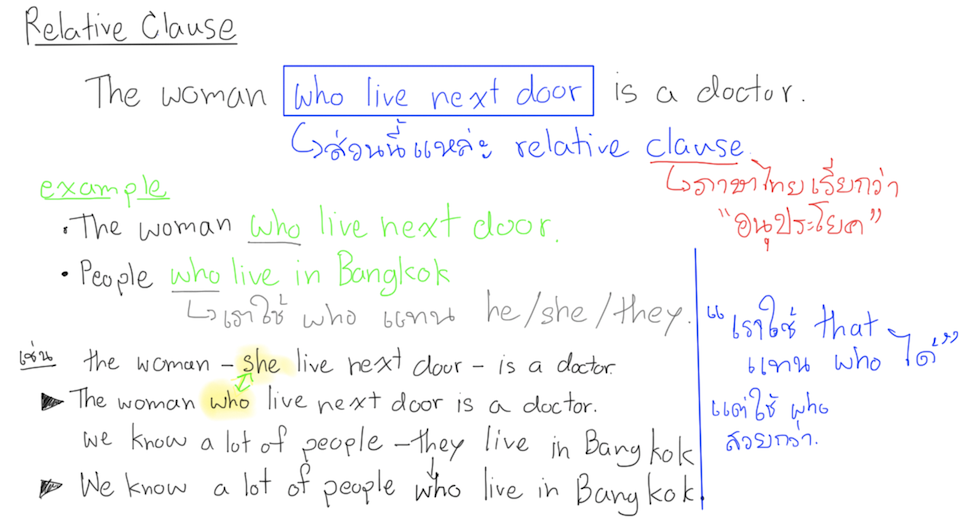 Relative Clause
The woman who live next door is a doctor.
↳ส่วนนี้แหล่ะ relative clause
↳ภาษาไทยเรียกว่า
"อนุประโยค"
example
• The woman who live next door.
• People who live in Bangkok
↳เราใช้ who แทน he/she/they.
เช่น the woman – she live next door – is a doctor
► The woman who live next door is a doctor.
we know a lot of people – they live in Bangkok
► We know a lot of people who live in Bangkok.
"เราใช้ that
แทน who ได้"
แต่ใช้ who
สวยกว่า.